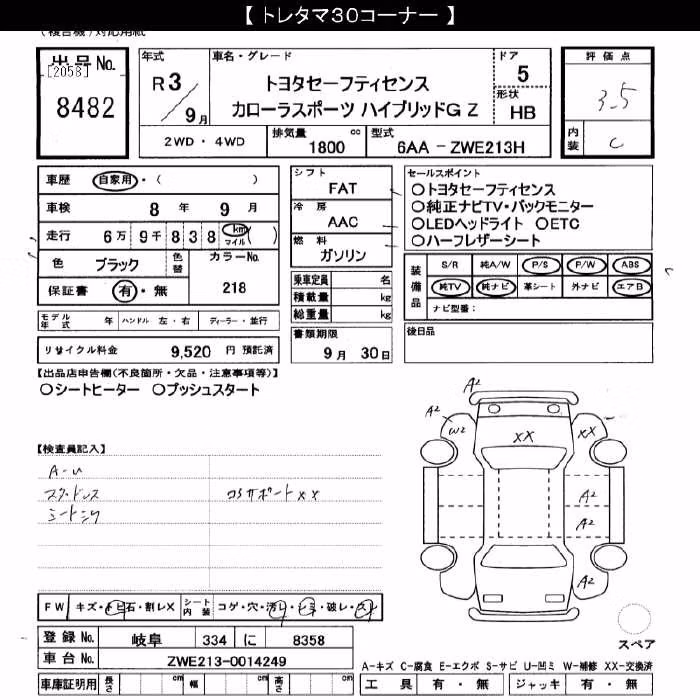 【 トレタマ30コーナー 】
(複合機)対応用紙
出品No. [2058] 8482
年式 R3/9月
車名・グレード トヨタセーフティセンス
カローラスポーツ ハイブリッドG Z
ドア 5
形状 HB
評価点 3.5
内装 C
2WD・4WD 排気量 1800 cc 型式 6AA - ZWE213H
車歴 自家用・( )
車検 8 年 9 月
走行 6万 9千 8 3 8 km マイル ( )
色 ブラック 色替 カラーNo. 218
保証書 有・無
シフト FAT
冷房 AAC
燃料 ガソリン
乗車定員 名
積載量 kg
総重量 kg
書類期限 9月 30日
セールスポイント
○トヨタセーフティセンス
○純正ナビTV・バックモニター
○LEDヘッドライト ○ETC
○ハーフレザーシート
装備品 S/R 純A/W P/S P/W ABS
純TV 純ナビ 革シート 外ナビ エアB
ナビ型番:
後日品
モデル年式 年 ハンドル 左・右 ディーラー・並行
リサイクル料金 9,520 円 預託済
【出品店申告欄(不良箇所・欠品・注意事項等)】
○シートヒーター ○プッシュスタート
【検査員記入】
A-U
スタッドレス コアサポートXX
A2
A2 W2 XX XX
A2
A2
A2
FW キズ・トビ石・割レX シート内装 コゲ・穴・汚レ・シミ・破レ・スレ
登録No. 岐阜 334 に 8358
車台No. ZWE213-0014249
スペア
A-キズ C-腐食 E-エクボ S-サビ U-凹ミ W-補修 XX-交換済
車庫証明用 長さ cm 幅 cm 高さ cm
工具 有・無 ジャッキ 有・無